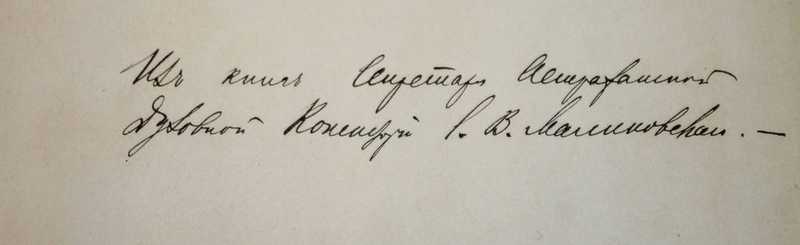 Изъ книгъ Секретаря Астраханской
Духовной Консисторіи С. В. Малиновскаго. —